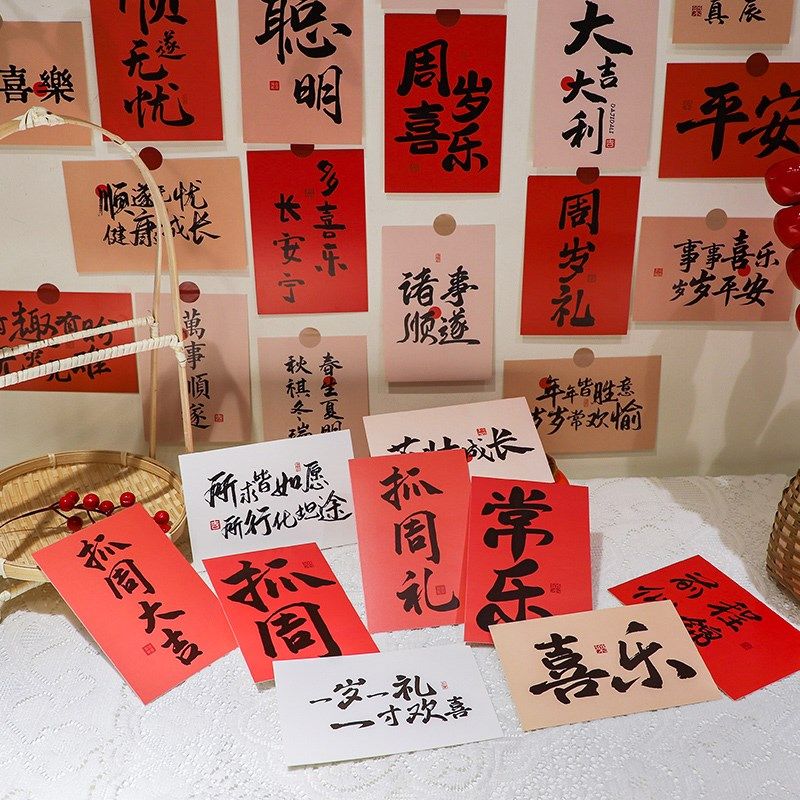 喜樂
顺遂
无忧
聪
明
周岁
喜乐
大吉
大利
DAJIDALI
真辰
平安
顺遂无忧
健康成长
多喜乐
长安宁
诸事
顺遂
周岁礼
事事喜乐
岁岁平安
趣有盼
萬事順遂
春生夏明
秋祺冬瑞
年年皆胜意
岁岁常欢愉
所求皆如愿
所行化坦途
茁壮成长
抓周大吉
抓周
抓周礼
常乐
前程
锦
一岁一礼
一寸欢喜
喜乐